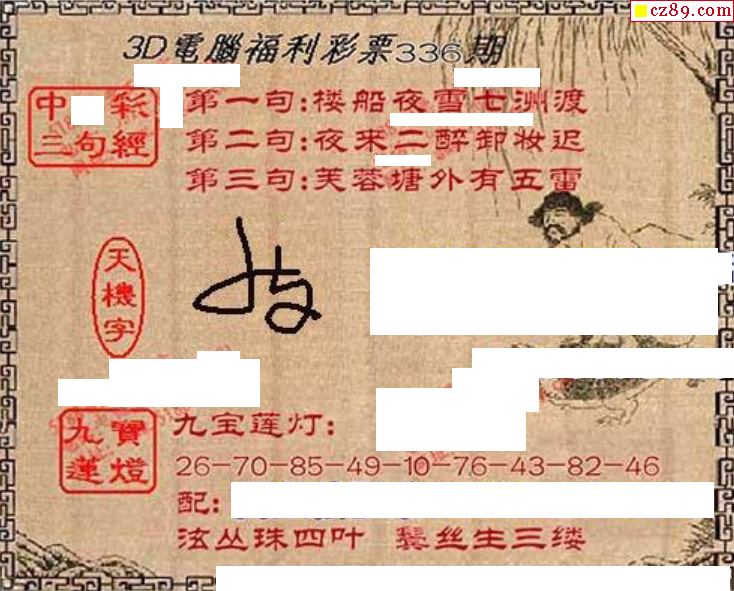 cz89.com
3D電腦福利彩票336期
中 彩
三句經
第一句:楼船夜雪七洲渡
第二句:夜来二醉卸妆迟
第三句:芙蓉塘外有五雷
天機字
九寶蓮燈
九宝莲灯:
26-70-85-49-10-76-43-82-46
配:
泫丛珠四叶 鬓丝生三缕